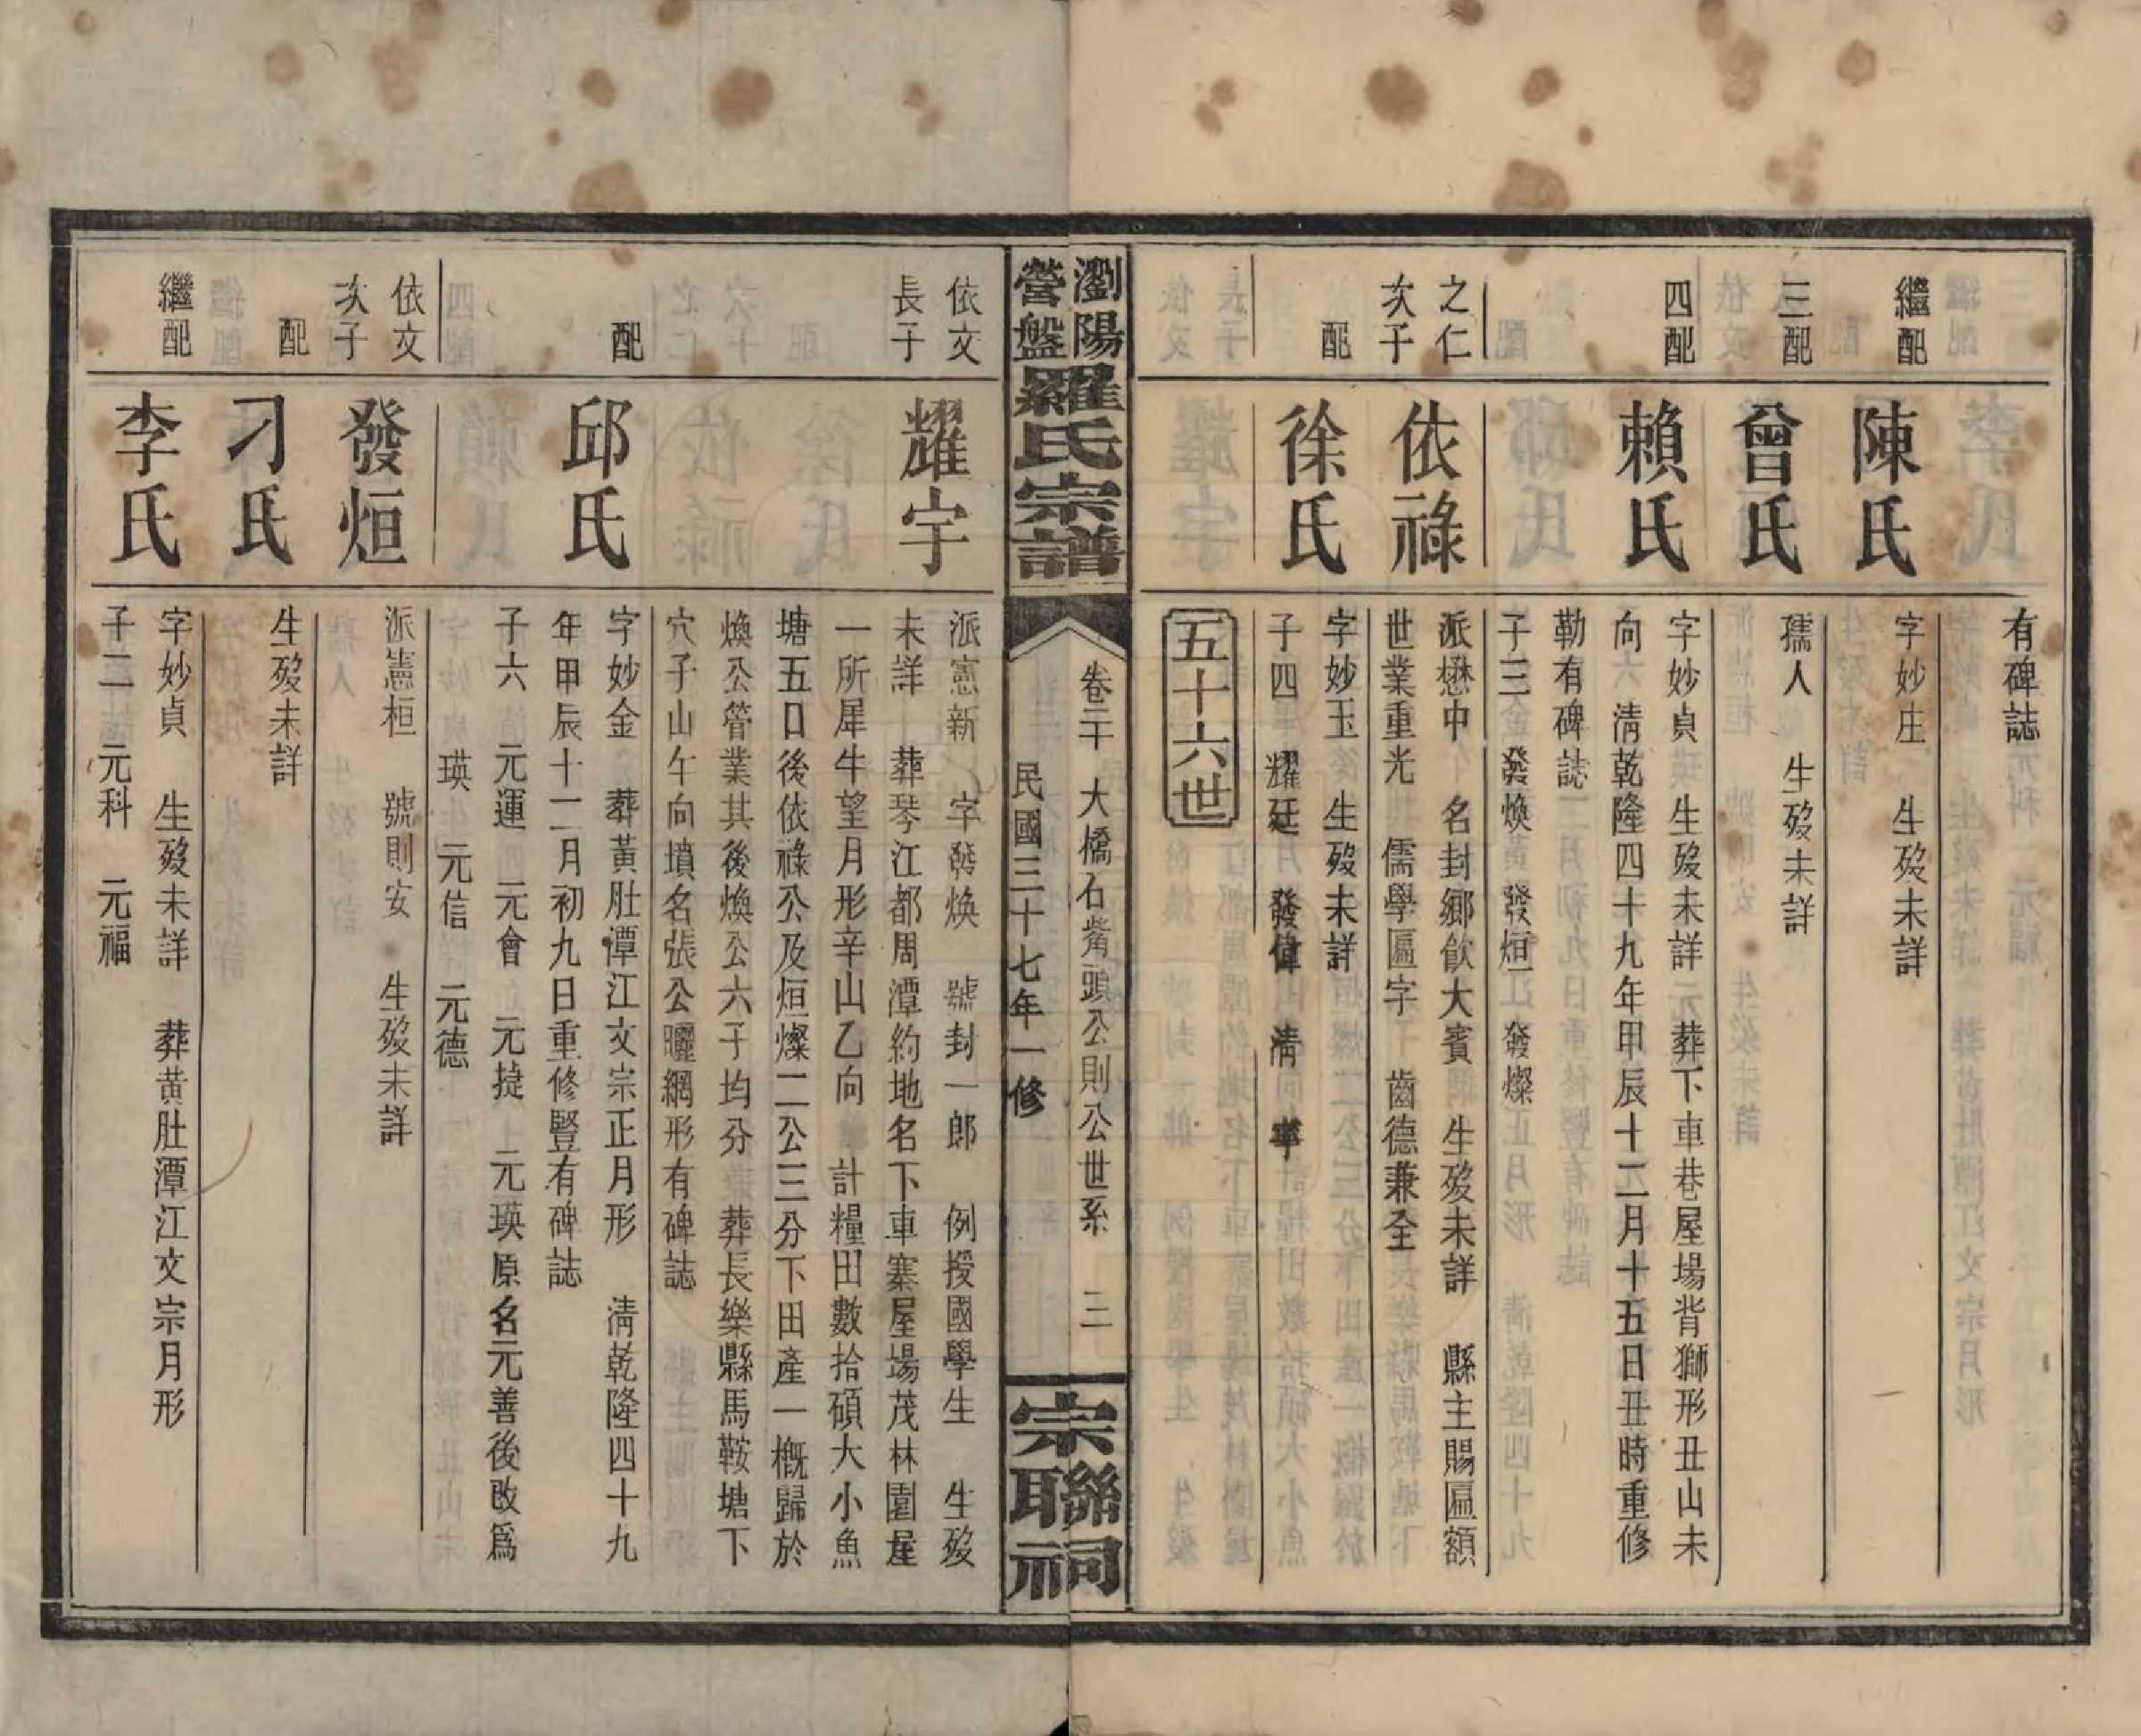 有碑誌
繼配
陳氏
字妙庄 生歿未詳
三配
曾氏
孺人 生歿未詳
四配
賴氏
字妙貞 生歿未詳 葬下車巷屋場背獅形丑山未
向 淸乾隆四十九年甲辰十二月十五日丑時重修
勒有碑誌
子三 發煥 發烜 發燦
之仁
次子
依祿
派懋中 名封鄉飮大賓 生歿未詳 縣主賜匾額
世業重光 儒學匾字 齒德兼全
配
徐氏
字妙玉 生歿未詳
子四 耀廷 發偉 淸 寧
五十六世
瀏陽
營盤
羅氏宗譜
卷二十 大橋石觜頭公則公世系 三
民國三十七年一修
宗聯祠
依文
長子
耀宇
派憲新 字發煥 號封一郎 例授國學生 生歿
未詳 葬琴江都周潭約地名下車寨屋場茂林園屋
一所犀牛望月形辛山乙向 計糧田數拾碩大小魚
塘五口後依祿公及烜燦二公三分下田產一概歸於
煥公管業其後煥公六子均分 葬長樂縣馬鞍塘下
穴子山午向墳名張公曬網形有碑誌
配
邱氏
字妙金 葬黃肚潭江文宗正月形 淸乾隆四十九
年甲辰十二月初九日重修豎有碑誌
子六 元運 元會 元㨗 元瑛原名元善後改爲
瑛 元信 元德
依文
次子
發烜
派憲桓 號則安 生歿未詳
配
刁氏
生歿未詳
繼配
李氏
字妙貞 生歿未詳 葬黄肚潭江文宗月形
子二 元科 元福